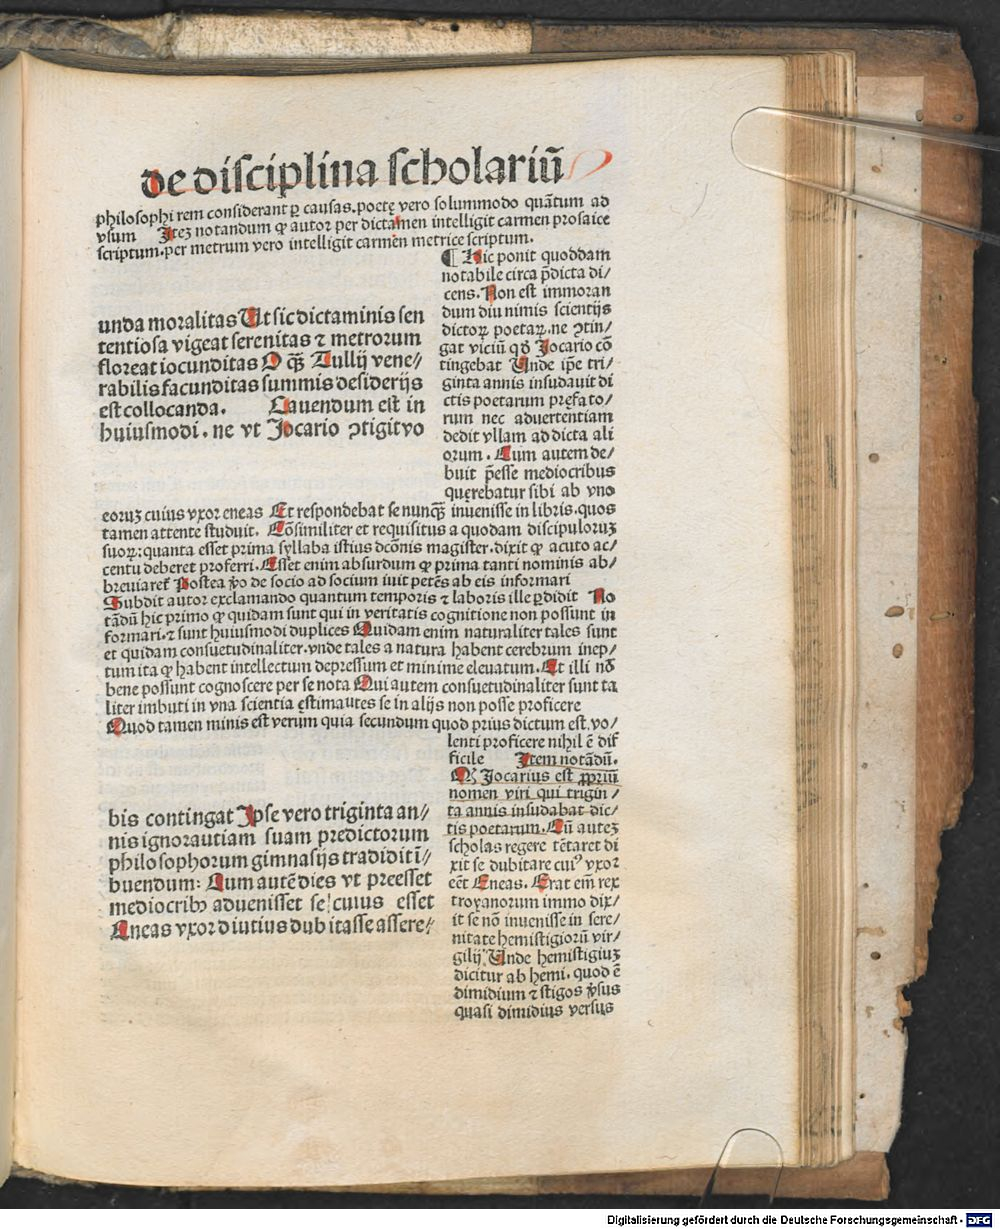 de disciplina scholariū
philosophi rem considerant ꝑ causas. poetę vero solummodo quātum ad
vsum Iteꝫ notandum ꝙ autor per dictamen intelligit carmen prosaice
scriptum. per metrum vero intelligit carmen metrice scriptum.
¶ Hic ponit quoddam
notabile circa p̄dicta di/
cens. Non est immoran
dum diu nimis scientijs
dictoꝝ poetaꝝ. ne ꝯtin/
gat viciū qd̓ Jocario cō
tingebat Unde ip̄e tri/
ginta annis insudauit di
ctis poetarum pręfato/
rum nec aduertentiam
dedit vllam ad dicta ali
orum. Cum autem de/
buit p̄esse mediocribus
querebatur sibi ab vno
unda moralitas Ut sic dictaminis sen
tentiosa vigeat serenitas ⁊ metrorum
floreat iocunditas O qꝫ̄ Tullij vene/
rabilis facunditas summis desiderijs
est collocanda. Cauendum est in
huiusmodi. ne vt Jocario ꝯtigit vo
eoruꝫ cuius vxor eneas Et respondebat se nunqꝫ̄ inuenisse in libris. quos
tamen attente studuit. Cōsimiliter et requisitus a quodam discipuloruꝫ
suoꝝ: quanta esset prima syllaba istius dcōnis magister. dixit ꝙ acuto ac/
centu deberet proferri. Esset enim absurdum ꝙ prima tanti nominis ab/
breuiaret̄ Postea v̓o de socio ad socium iuit petēs ab eis informari
Subdit autor exclamando quantum temporis ⁊ laboris ille ꝑdidit No
tādū hic primo ꝙ quidam sunt qui in veritatis cognitione non possunt in
formari. ⁊ sunt huiusmodi duplices Quidam enim naturaliter tales sunt
et quidam consuetudinaliter. vnde tales a natura habent cerebrum inep/
tum ita ꝙ habent intellectum depressum et minime eleuatum. Et illi nō
bene possunt cognoscere per se nota Qui autem consuetudinaliter sunt ta
liter imbuti in vna scientia ęstimautes se in alijs non posse proficere
Quod tamen minis est verum quia secundum quod prius dictum est. vo/
lenti proficere nihil ē dif
ficile Item notādū.
Jocarius est ꝓpriū
nomen viri qui trigin/
ta annis insudabat dic/
tis poetarum. Cū auteꝫ
scholas regere tētaret di
xit se dubitare cuiꝰ vxor
eēt Eneas. Erat em̄ rex
troyanorum immo dix/
it se nō inuenisse in sere/
nitate hemistigiorū vir/
gilij. Unde hemistigiuꝫ
dicitur ab hemi. quod ē
dimidium ⁊ stigos v̓sus
quasi dimidius versus
bis contingat Ipse vero triginta an/
nis ignorautiam suam predictorum
philosophorum gimnasijs tradidit ī/
buendum: Cum autē dies vt preesset
mediocribꝰ aduenisset se cuius esset
Eneas vxor diutius dubitasse assere/
Digitalisierung gefördert durch die Deutsche Forschungsgemeinschaft - DFG